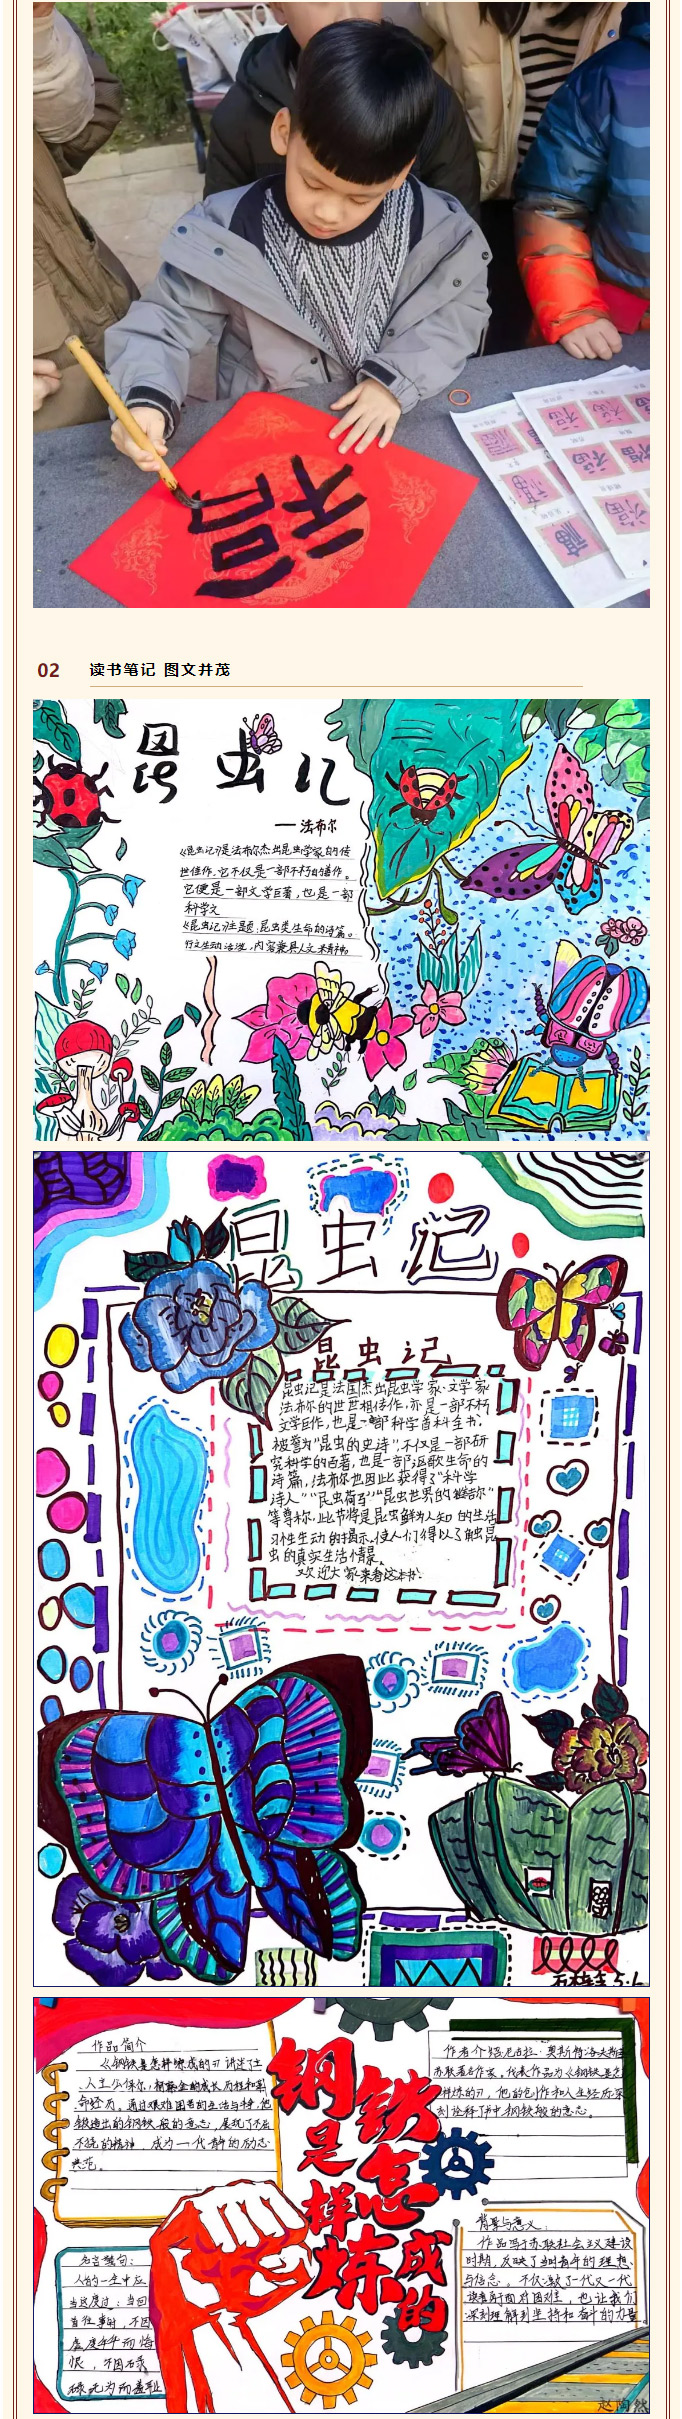 福
02 读书笔记 图文并茂
昆虫记
——法布尔
《昆虫记》是法布尔杰出昆虫学家的传
世佳作.它不仅是一部不朽的著作。
它便是一部文学巨著,也是一部
科学文
《昆虫记》主题,昆虫类生命的诗篇。
行文生动活泼,内容兼具人文精神。
昆虫记
昆虫记
昆虫记是法国杰出昆虫学家·文学家
法布尔的世世相传作,亦是一部不朽
文学巨作,也是一部科学百科全书。
被誉为"昆虫的史诗".不仅是一部研
究科学的百著,也是一部讴歌生命的
诗篇,法布尔也因此获得了"科学
诗人""昆虫荷马""昆虫世界的维吉尔"
等尊称,此书将是昆虫鲜为人知的生活
习性生动的揭示,使人们得以了解昆
虫的真实生活情景。
欢迎大家来看这本书!
5.6
钢铁是怎样炼成的
作品简介
《钢铁是怎样炼成的》讲述了主
典范。
作者介绍:尼古拉·奥斯特洛夫斯基
苏联著名作家,代表作品为《钢铁是怎
样炼的》,他的创作和人生经历深
刻诠释了书中钢铁般的意志。
背景与意义:
作品写于苏联社会主义建设
时期,反映了当时青年的理想
与信念。不仅激励了一代又一代
读者勇于面对困难,也让我们
深刻理解到坚持和奋斗的力量。
名言警句:
人的一生中应
当这度过:当回
首往事时,不因
虚度年华而悔
恨,不因碌
碌无为而羞耻
赵陶然